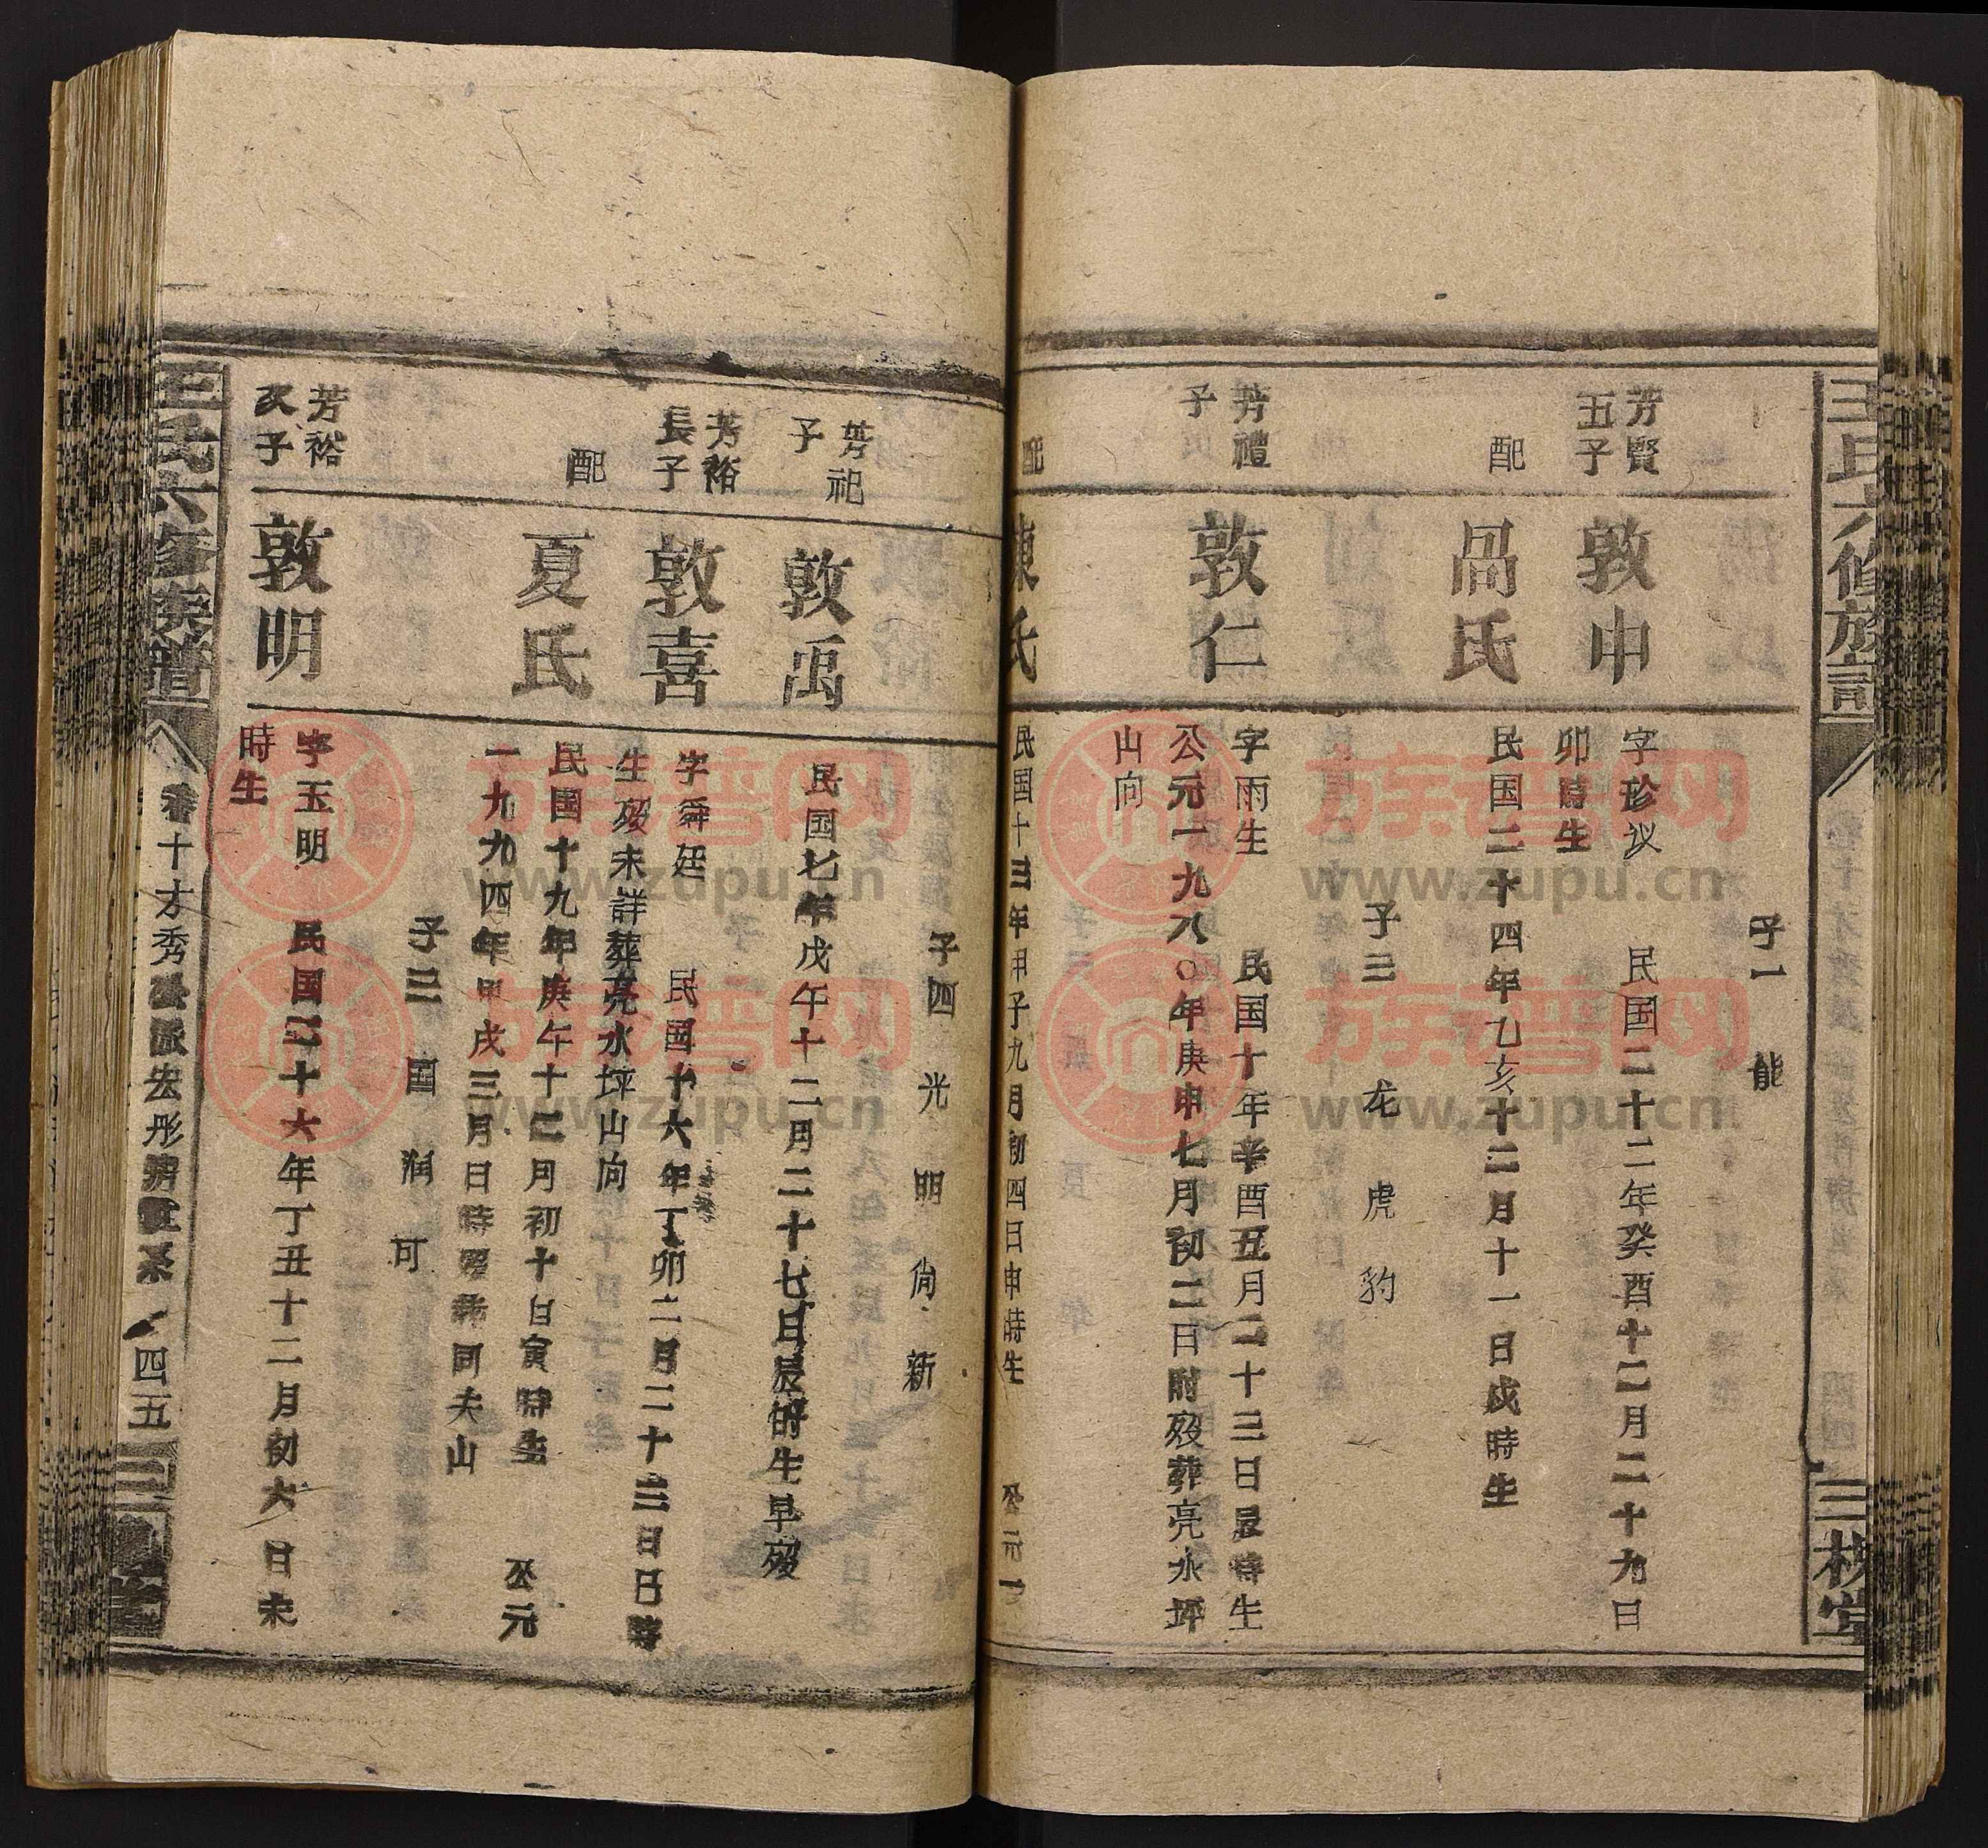 王氏六修族譜
三槐堂
子一　能
芳賢
五子
敦申
字珍议　民国二十二年癸酉十二月二十九日
卯時生
配
呙氏
民国二十四年乙亥十二月十一日戌時生
子三　龙　虎　豹
芳禮
子
敦仁
字雨生　民国十年辛酉五月二十三日辰時生
公元一九八〇年庚申七月初二日時殁葬亮水坪
山向
配
陳氏
民国十三年甲子九月初四日申時生　公元一
子四　光　明　尚　新
芳祀
子
敦禹
民国七年戊午十二月二十七日辰時生早殁
芳裕
長子
敦喜
字舜廷　民国十六年丁卯二月二十三日巳時
生殁未詳葬亮水坪山向
配
夏氏
民国十九年庚午十二月初十日寅時生　公元
一九九四年甲戌三月日時殁葬同夫山
子三　国　润　可
芳裕
次子
敦明
字玉明　民国二十六年丁丑十二月初六日未
時生
王氏六修族譜
卷十才秀公派宏彤房世系
四五
三槐堂
族谱网
www.zupu.cn
族谱网
www.zupu.cn
族谱网
www.zupu.cn
族谱网
www.zupu.cn